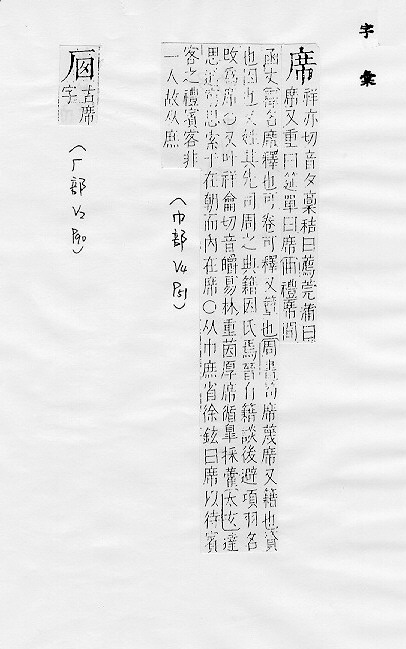 字彙
席
祥亦切音夕藁秸曰薦莞蒲曰
席又重曰筵單曰席曲禮席間
函丈釋名席釋也可卷可釋又藳也周書筍席蔑席又籍也資
也因也又姓其先司周之典籍因氏焉晉有籍談後避項羽名
改爲席○又叶祥龠切音嚼易林重茵厚席循臯採藿太玄達
思通窮思索于在朝而內在席○从巾庶省徐鉉曰席以待賓
客之禮賓客非
一人故从庶
(巾部 V4 P51)
古席
字
(厂部 V2 P80)